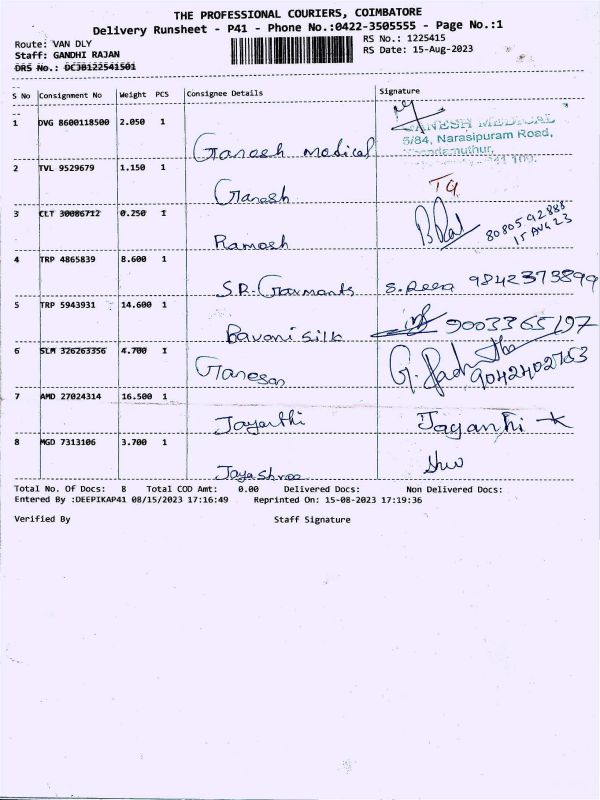 THE PROFESSIONAL COURIERS, COIMBATORE
Delivery Runsheet - P41 - Phone No.:0422-3505555 - Page No.:1
Route: VAN DLY
RS No.: 1225415
Staff: GANDHI RAJAN
RS Date: 15-Aug-2023
DRS No.: DCJB122541501
S No Consignment No Weight PCS Consignee Details Signature
1 DVG 8600118500 2.050 1
Ganesh medical
GANESH MEDICAL
5/84, Narasipuram Road,
2 TVL 9529679 1.150 1
Ganesh
3 CLT 30086712 0.250 1
Ramesh
8080592888
15 AUG 23
4 TRP 4865839 8.600 1
S.R. Garments 9842373899
5 TRP 5943931 14.600 1
Bavani silk 9003365197
6 SLM 326263356 4.700 1
Ganesan
9042402763
7 AMD 27024314 16.500 1
Jayanthi Jayanthi
8 MGD 7313106 3.700 1
Jayashree
Total No. Of Docs: 8 Total COD Amt: 0.00 Delivered Docs: Non Delivered Docs:
Entered By :DEEPIKAP41 08/15/2023 17:16:49 Reprinted On: 15-08-2023 17:19:36
Verified By Staff Signature